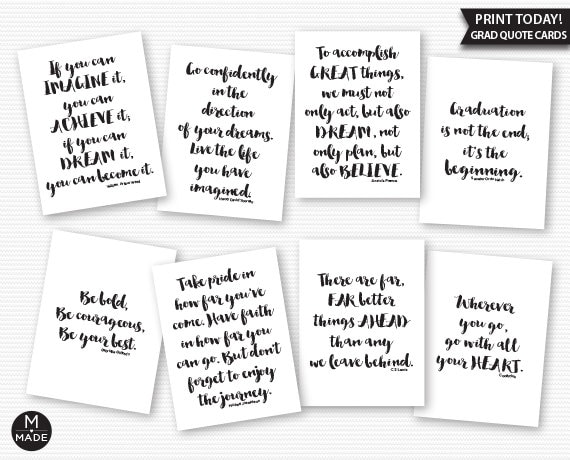 PRINT TODAY!
GRAD QUOTE CARDS
If you can
IMAGINE it,
you can
ACHIEVE it;
if you can
DREAM it,
you can become it.
Go confidently
in the
direction
of your dreams.
Live the life
you have
imagined.
To accomplish
GREAT things,
we must not
only act, but also
DREAM, not
only plan, but
also BELIEVE.
Graduation
is not the end;
it's the
beginning.
Be bold,
Be courageous,
Be your best.
Take pride in
how far you've
come. Have faith
in how far you
can go. But don't
forget to enjoy
the journey.
There are far,
FAR better
things AHEAD
than any
we leave behind.
C.S. Lewis
Wherever
you go,
go with all
your HEART.
Confucius
M
MADE